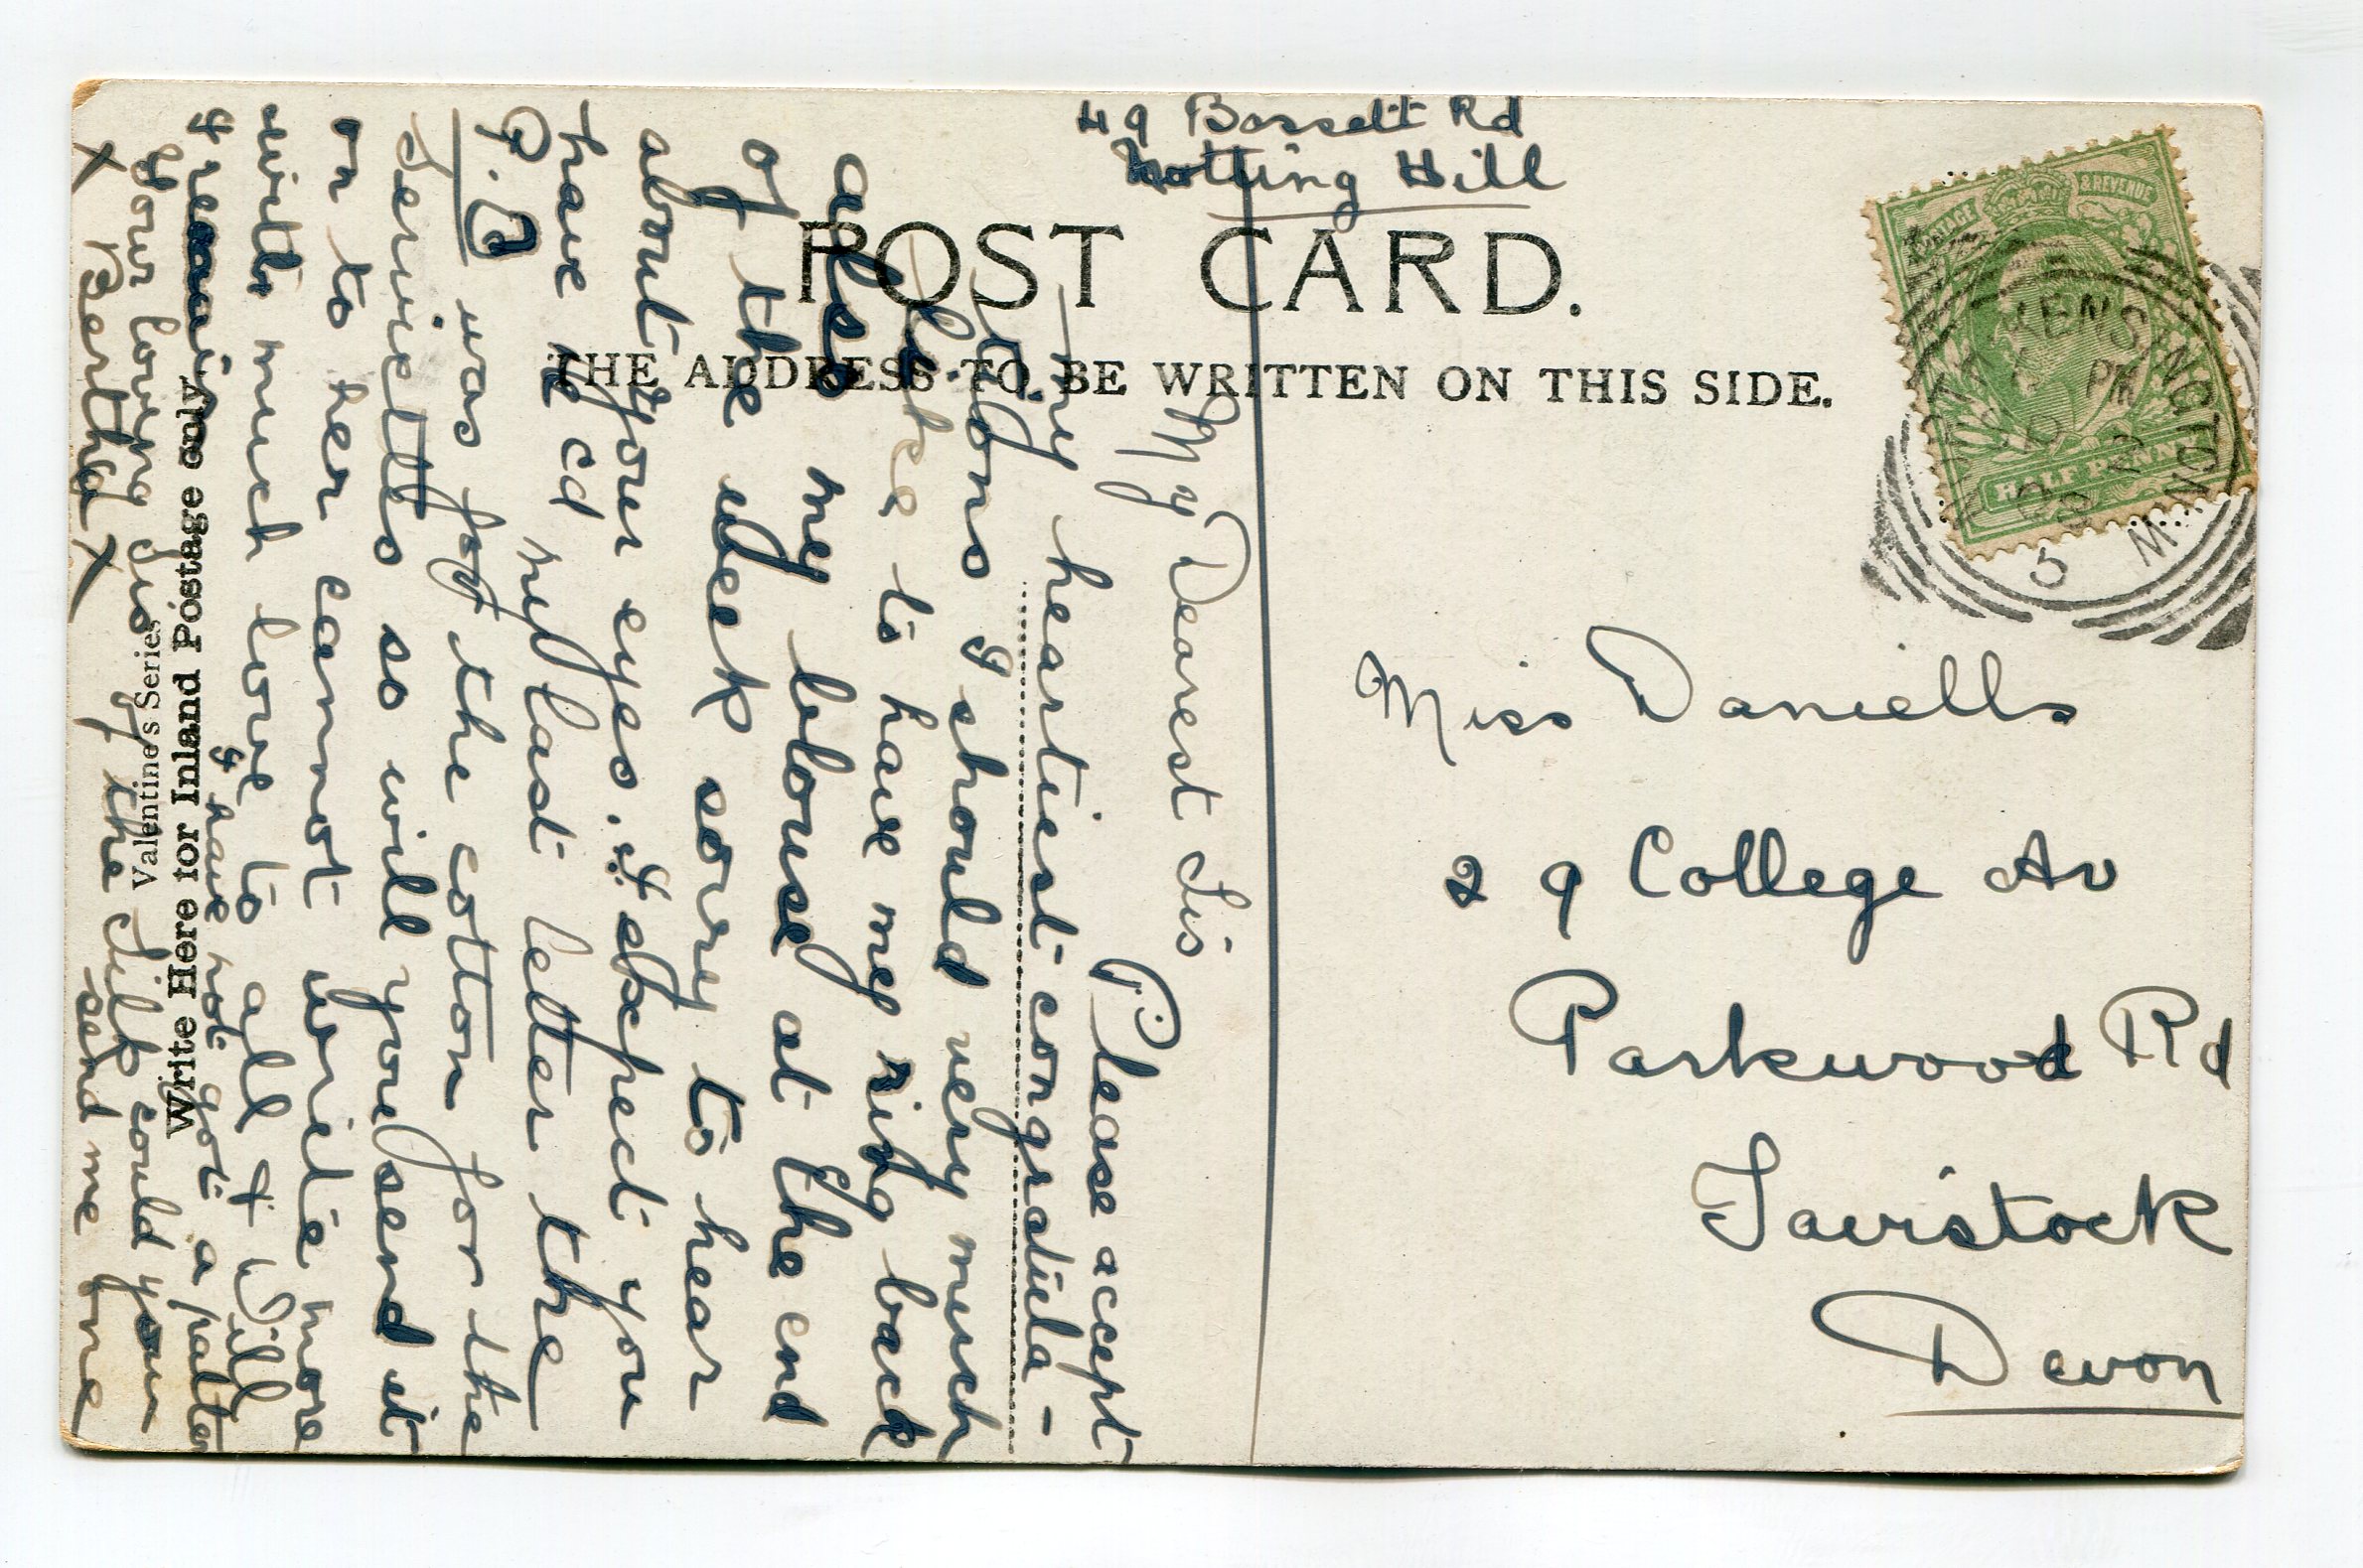 49 Bassett Rd
Notting Hill
POST CARD.
THE ADDRESS TO BE WRITTEN ON THIS SIDE.
POSTAGE & REVENUE
HALF PENNY
KENSINGTON
PM
2
09
5
Miss Daniells
29 College Av
Parkwood Rd
Tavistock
Devon
My Dearest Sis
Please accept
my heartiest congratula-
tions I should very much
like to have my ring back
also my blouse at the end
of the week sorry to hear
about your eyes. I expect you
have re cd my last letter the
P.O was for the cotton for the
Serviettes so will you send it
on to her cannot write more
with much love to all & Will
& remain
Your loving Sis
x Bertha x
I have not got a patter
of the Silk could you
send me one
Write Here for Inland Postage only.
Valentine's Series